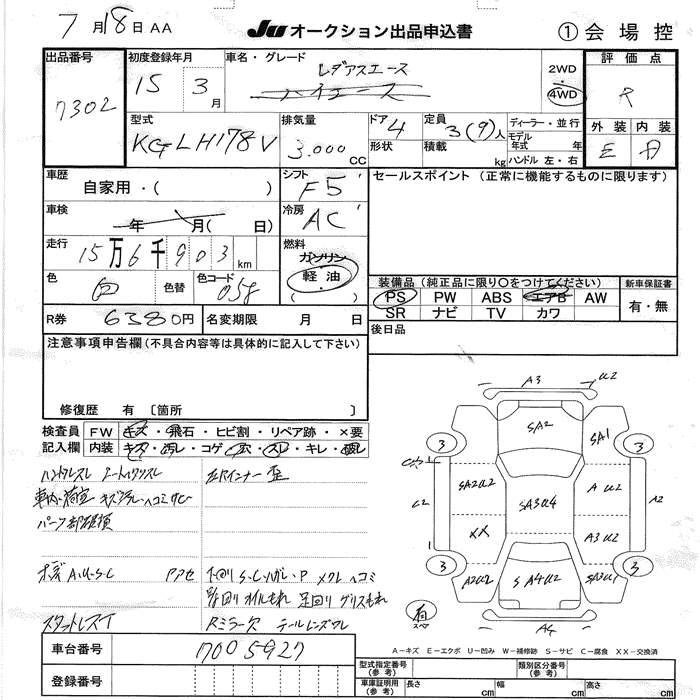 7月18日AA JU オークション出品申込書 ①会場控
出品番号 初度登録年月 車名・グレード 評価点
レグアスエース
15 3月 ハイエース 2WD 4WD R
7302
型式 排気量 ドア 定員 ディーラー・並行 外装 内装
KG-LH178V 3.000CC 4 3(9)人 モデル年式 年
形状 積載 kg ハンドル 左・右 E D
車歴 シフト セールスポイント(正常に機能するものに限ります)
自家用・( ) F5
車検 年 月( 日) 冷房 AC
走行 15万6千903km 燃料 ガソリン
軽油
色 白 色替 色コード 058
装備品(純正品に限り〇をつけてください) 新車保証書
PS PW ABS エアB AW 有・無
SR ナビ TV カワ
R券 6380円 名変期限 月 日 後日品
注意事項申告欄(不具合内容等は具体的に記入して下さい)
修復歴 有 〔箇所 〕
検査員 FW キズ・飛石・ヒビ割・リペア跡・×要
記入欄 内装 キズ・汚レ・コゲ・穴・スレ・キレ・破レ
ハンドルスレ シートハゲスレ
車内・荷室 キズ汚レ・ヘコミサビ
パーツ部破損
ボデA.U.S.C
下回りS.C.ハガレ.P メクレ ヘコミ
オイルもれ 足回り グリスもれ
スタットレスT Rミラー欠 テールレンズワレ
A3 U2
SA2 SA1
3 3
C2 SA2U2 SA3U4 A U2 A2
XX A3U2
3 3
A2U2 S A4U2 SA3U1
有 スペア A4
A-キズ E-エクボ U-凹み W-補修跡 S-サビ C-腐食 XX-交換済
車台番号 7005927 型式指定番号(参考) 類別区分番号(参考)
登録番号 車庫証明用(参考) 長さ cm 幅 cm 高さ cm